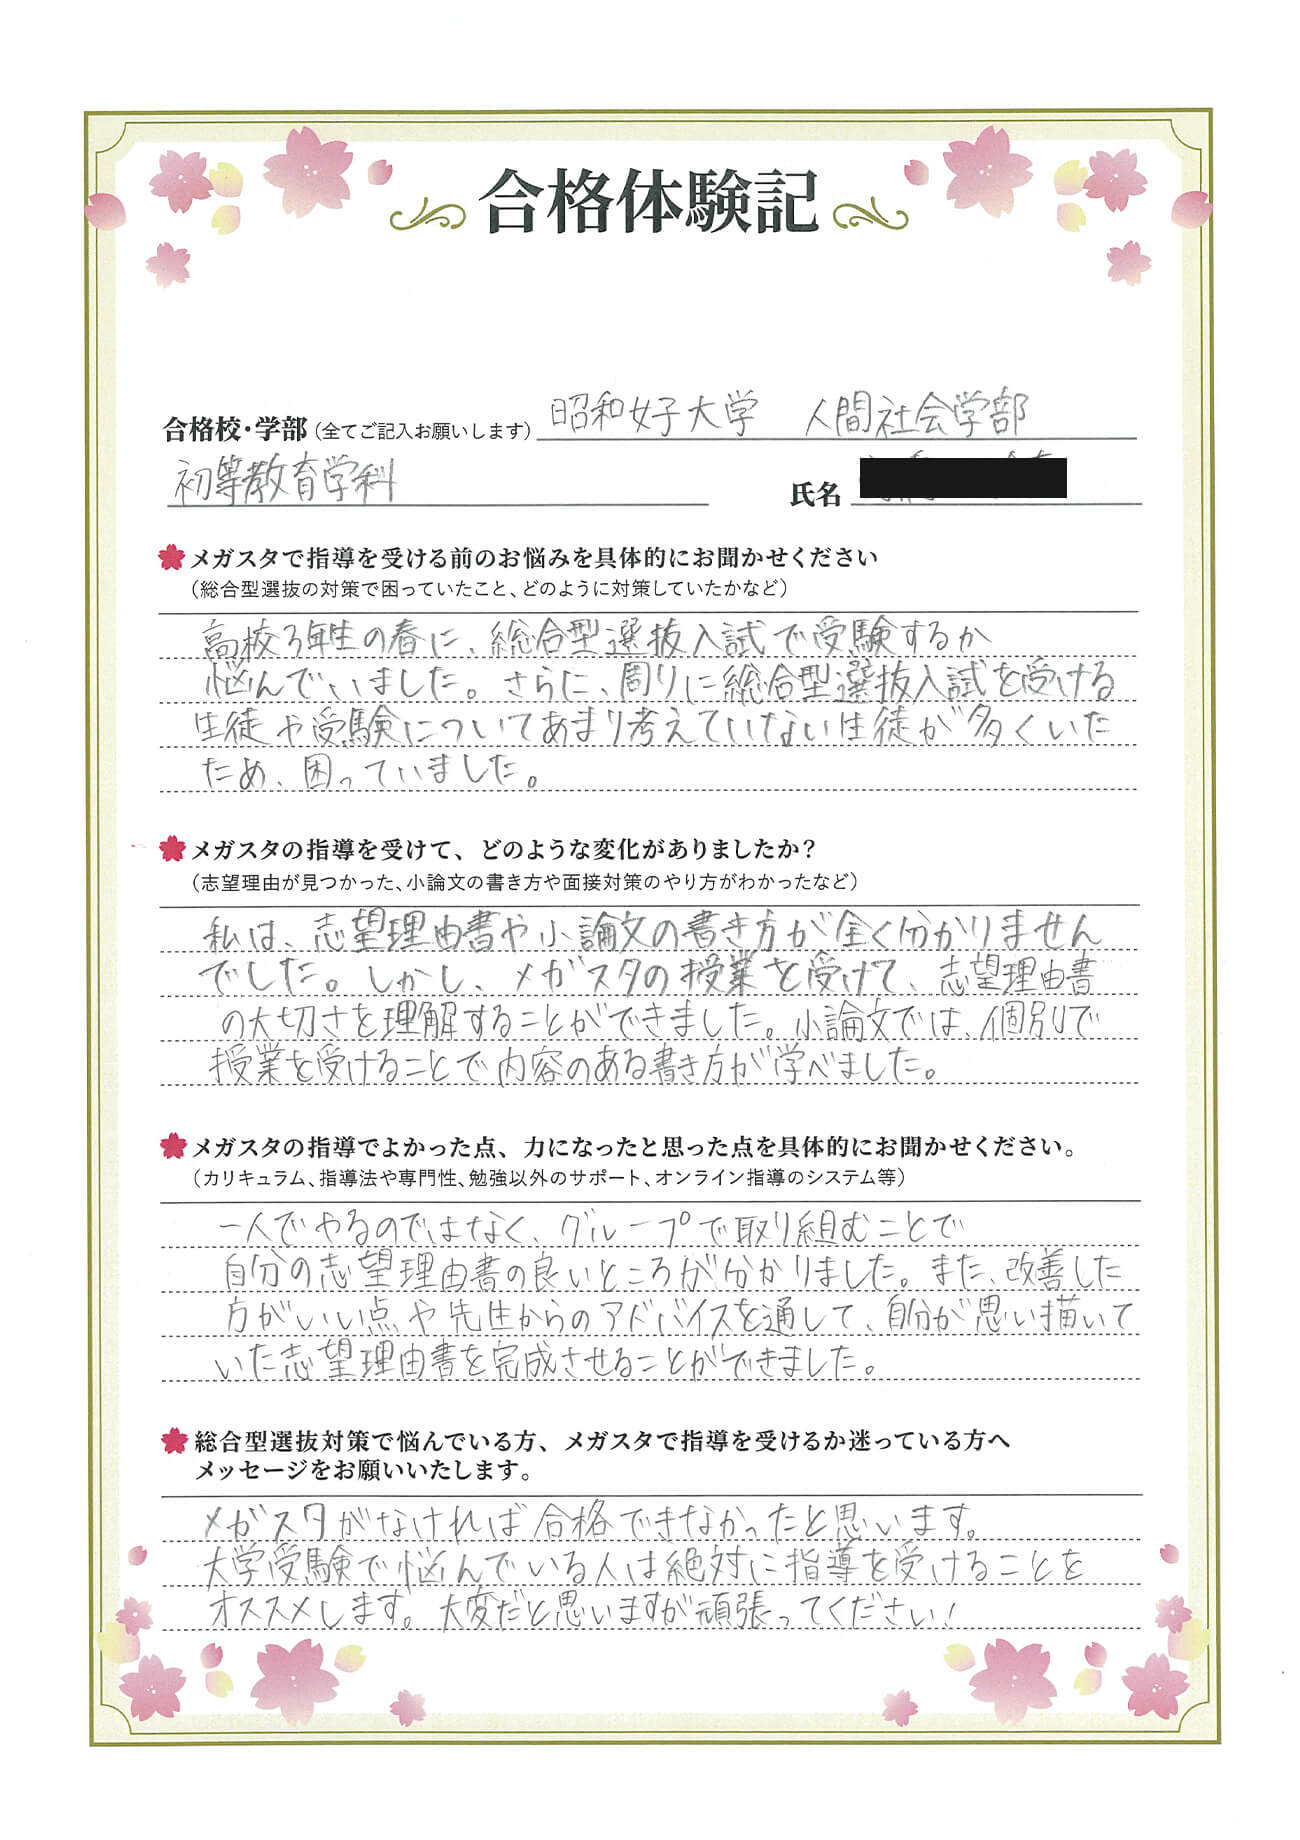 合格体験記
合格校・学部（全てご記入お願いします） 昭和女子大学　人間社会学部
初等教育学科
氏名
メガスタで指導を受ける前のお悩みを具体的にお聞かせください
（総合型選抜の対策で困っていたこと、どのように対策していたかなど）
高校3年生の春に、総合型選抜入試で受験するか
悩んでいました。さらに、周りに総合型選抜入試を受ける
生徒や受験についてあまり考えていない生徒が多くいた
ため、困っていました。
メガスタの指導を受けて、どのような変化がありましたか？
（志望理由が見つかった、小論文の書き方や面接対策のやり方がわかったなど）
私は、志望理由書や小論文の書き方が全く分かりません
でした。しかし、メガスタの授業を受けて、志望理由書
の大切さを理解することができました。小論文では、個別で
授業を受けることで内容のある書き方が学べました。
メガスタの指導でよかった点、力になったと思った点を具体的にお聞かせください。
（カリキュラム、指導法や専門性、勉強以外のサポート、オンライン指導のシステム等）
一人でやるのではなく、グループで取り組むことで
自分の志望理由書の良いところが分かりました。また、改善した
方がいい点や先生からのアドバイスを通して、自分が思い描いて
いた志望理由書を完成させることができました。
総合型選抜対策で悩んでいる方、メガスタで指導を受けるか迷っている方へ
メッセージをお願いいたします。
メガスタがなければ合格できなかったと思います。
大学受験で悩んでいる人は絶対に指導を受けることを
オススメします。大変だと思いますが頑張ってください！